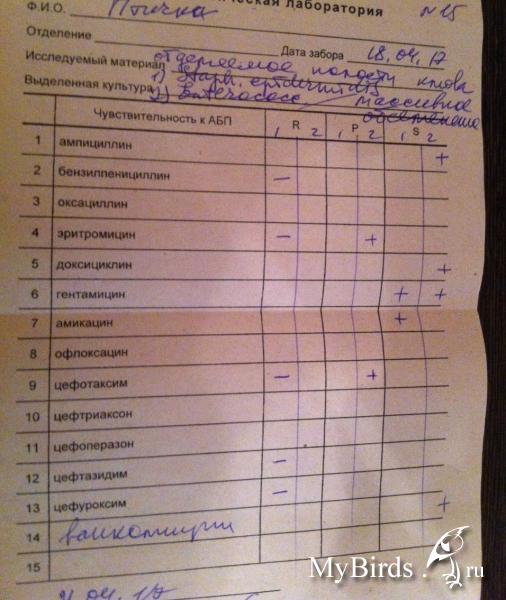 ческая лаборатория
Ф.И.О. Птичка №15
Отделение Дата забора 18.04.17
Исследуемый материал отделяемое полости клюва
Выделенная культура 1) Staph. epidermidis
2) Enterococc. массивное
обсеменение
Чувствительность к АБП R P S
1 2 1 2 1 2
1 ампициллин +
2 бензилпенициллин –
3 оксациллин
4 эритромицин – +
5 доксициклин +
6 гентамицин + +
7 амикацин +
8 офлоксацин
9 цефотаксим – +
10 цефтриаксон
11 цефоперазон
12 цефтазидим –
13 цефуроксим –
14 ванкомицин +
15
04.17
MyBirds.ru